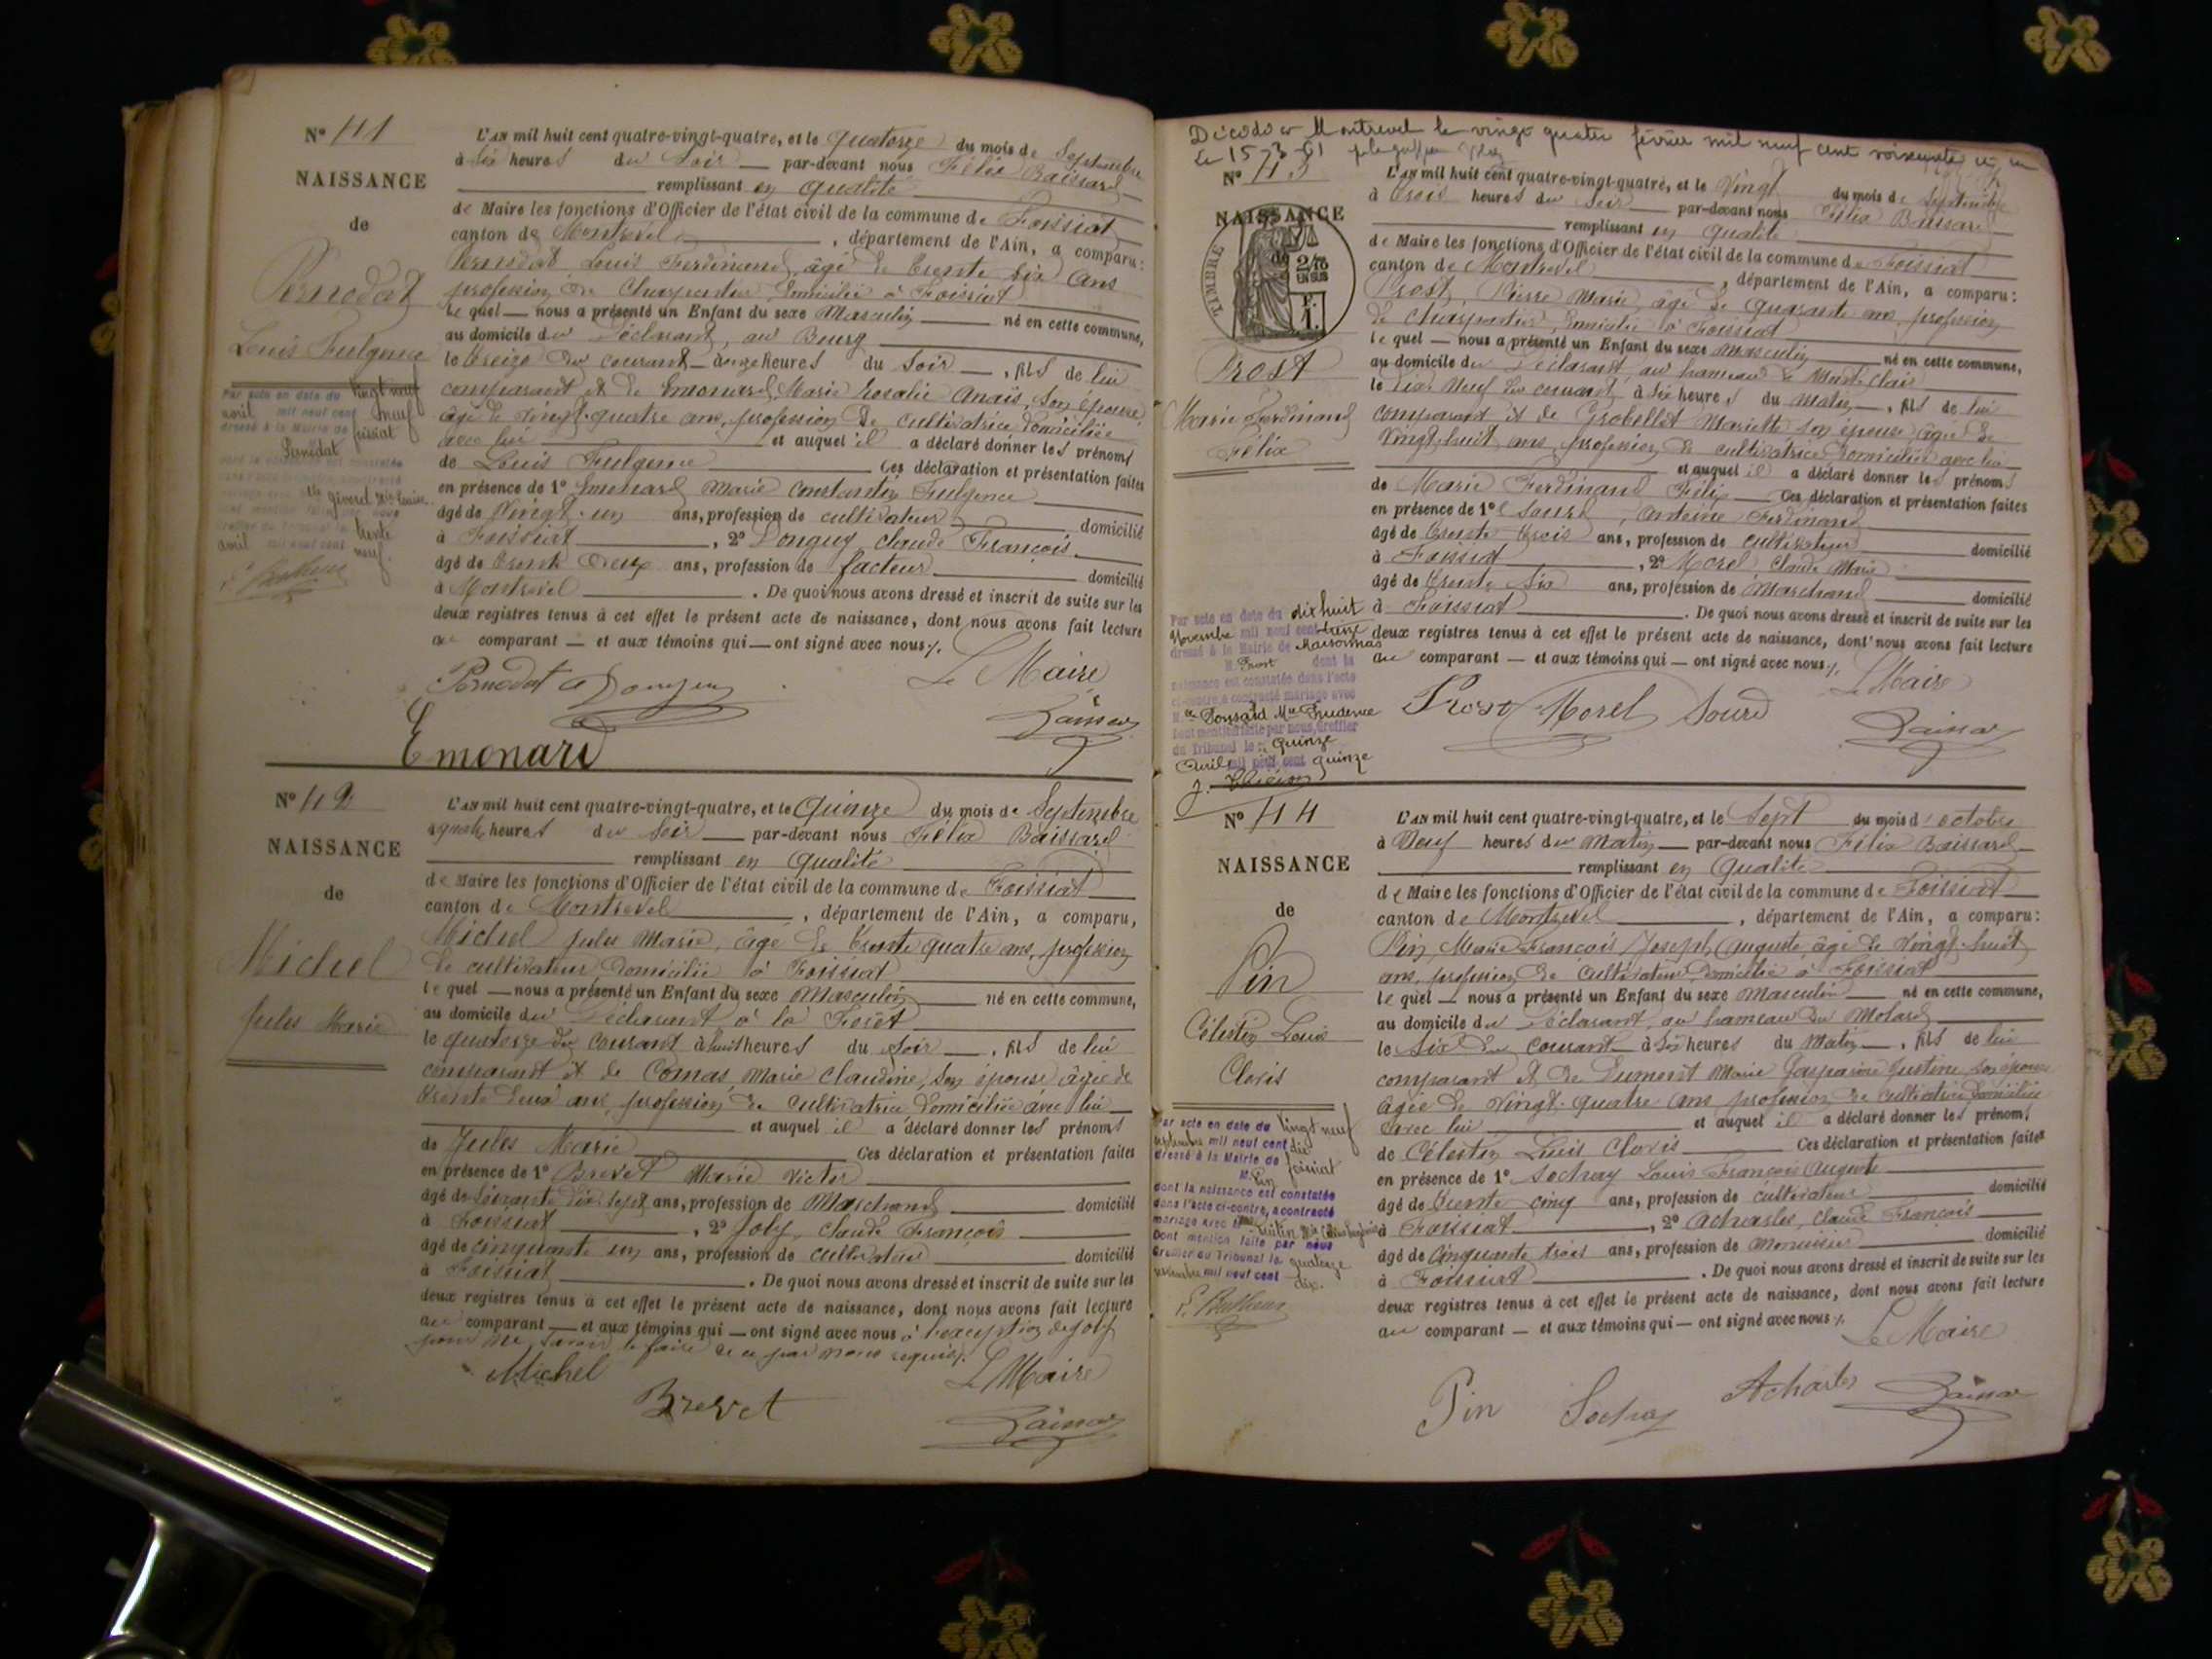 N° 41
NAISSANCE
de
Pernodat
Louis Fulgence
Par acte en date du vingt neuf
avril mil neuf cent neuf
dressé à la Mairie de foissiat
Pernodat
trente
avril mil neuf cent neuf.
L'AN mil huit cent quatre-vingt-quatre, et le quatorze du mois de Septembre
à six heures du Soir par-devant nous Félix Baissard
remplissant en qualité
de Maire les fonctions d'Officier de l'état civil de la commune de Foissiat
canton de Montrevel, département de l'Ain, a comparu:
Pernodat Louis Ferdinand, âgé de trente six ans
profession de Charpentier domicilié à Foissiat
lequel nous a présenté un Enfant du sexe Masculin né en cette commune,
au domicile du Déclarant, au Bourg
le treize du courant à onze heures du Soir, fils de lui
comparant et de Emonard Marie Rosalie Anaïs, son épouse
âgée de vingt-quatre ans, profession de cultivatrice domiciliée
avec lui et auquel il a déclaré donner les prénoms
de Louis Fulgence Ces déclaration et présentation faites
en présence de 1° Emonard Marie Constantin Fulgence
âgé de Vingt-un ans, profession de cultivateur domicilié
à Foissiat, 2° Donguy Claude François
âgé de trente deux ans, profession de facteur domicilié
à Montrevel. De quoi nous avons dressé et inscrit de suite sur les
deux registres tenus à cet effet le présent acte de naissance, dont nous avons fait lecture
au comparant et aux témoins qui ont signé avec nous %.
Pernodat Donguy Le Maire
Emonard Baissard
N° 42
NAISSANCE
de
Michel
Jules Marie
L'AN mil huit cent quatre-vingt-quatre, et le Quinze du mois de Septembre
à quatre heures du Soir par-devant nous Félix Baissard
remplissant en qualité
de Maire les fonctions d'Officier de l'état civil de la commune de Foissiat
canton de Montrevel, département de l'Ain, a comparu,
Michel Jules Marie, âgé de trente quatre ans, profession
de cultivateur domicilié à Foissiat
lequel nous a présenté un Enfant du sexe Masculin né en cette commune,
au domicile du Déclarant à la Forêt
le quatorze du courant à huit heures du Soir, fils de lui
comparant et de Comas Marie Claudine, son épouse âgée de
trente deux ans, profession de cultivatrice domiciliée avec lui
et auquel il a déclaré donner les prénoms
de Jules Marie Ces déclaration et présentation faites
en présence de 1° Brevet Marie Victor
âgé de soixante dix sept ans, profession de Marchand domicilié
à Foissiat, 2° Joly, Claude François
âgé de cinquante un ans, profession de cultivateur domicilié
à Foissiat. De quoi nous avons dressé et inscrit de suite sur les
deux registres tenus à cet effet le présent acte de naissance, dont nous avons fait lecture
au comparant et aux témoins qui ont signé avec nous à l'exception de Joly
pour ne savoir le faire de ce par nous requis %.
Michel Le Maire
Brevet Baissard
Décédé à Montrevel le vingt quatre février mil neuf cent soixante et un
Le 15-3-61
N° 43
NAISSANCE
de
TIMBRE
Prost
Marie Ferdinand
Félix
Par acte en date du dix huit
Novembre mil neuf cent treize
dressé à la Mairie de Marsonnas
M. Prost dont la
naissance est constatée dans l'acte
ci-contre a contracté mariage avec
Mlle Ponsard Mie Prudence
Dont mention faite par nous, Greffier
du Tribunal le quinze
Avril mil neuf cent quinze
L'AN mil huit cent quatre-vingt-quatre, et le Vingt du mois de Septembre
à trois heures du Soir par-devant nous Félix Baissard
remplissant en qualité
de Maire les fonctions d'Officier de l'état civil de la commune de Foissiat
canton de Montrevel, département de l'Ain, a comparu:
Prost, Pierre Marie, âgé de quarante ans, profession
de charpentier, domicilié à Foissiat
lequel nous a présenté un Enfant du sexe Masculin né en cette commune,
au domicile du Déclarant, au hameau de Mont-Clair
le dix-neuf du courant, à six heures du Matin, fils de lui
comparant et de Grobellet Mariette son épouse, âgée de
Vingt-huit ans, profession de cultivatrice domiciliée avec lui
et auquel il a déclaré donner les prénoms
de Marie Ferdinand Félix Ces déclaration et présentation faites
en présence de 1° Sourd, Antoine Ferdinand
âgé de trente trois ans, profession de cultivateur domicilié
à Foissiat, 2° Morel Claude Marie
âgé de trente six ans, profession de Marchand domicilié
à Foissiat. De quoi nous avons dressé et inscrit de suite sur les
deux registres tenus à cet effet le présent acte de naissance, dont nous avons fait lecture
au comparant et aux témoins qui ont signé avec nous %.
Le Maire
Prost Morel Sourd Baissard
N° 44
NAISSANCE
de
Pin
Célestin Louis
Clovis
Par acte en date du vingt neuf
septembre mil neuf cent dix
dressé à la Mairie de foissiat
M. Pin
dont la naissance est constatée
dans l'acte ci-contre, a contracté
mariage avec
Dont mention faite par nous
Greffier du Tribunal le quatorze
mil neuf cent dix.
L'AN mil huit cent quatre-vingt-quatre, et le Sept du mois d'octobre
à Neuf heures du Matin par-devant nous Félix Baissard
remplissant en Qualité
de Maire les fonctions d'Officier de l'état civil de la commune de Foissiat
canton de Montrevel, département de l'Ain, a comparu:
Pin, Marie François Joseph Auguste, âgé de Vingt-huit
ans, profession de cultivateur domicilié à Foissiat
lequel nous a présenté un Enfant du sexe Masculin né en cette commune,
au domicile du Déclarant, au hameau du Molard
le Six du courant à six heures du Matin, fils de lui
comparant et de Dumont Marie Gasparine Justine son épouse
âgée de Vingt-quatre ans profession de cultivatrice domiciliée
avec lui et auquel il a déclaré donner les prénoms
de Célestin Louis Clovis Ces déclaration et présentation faites
en présence de 1° Sochay Louis François Auguste
âgé de trente cinq ans, profession de cultivateur domicilié
à Foissiat, 2° Acharles, Claude François
âgé de Cinquante trois ans, profession de Menuisier domicilié
à Foissiat. De quoi nous avons dressé et inscrit de suite sur les
deux registres tenus à cet effet le présent acte de naissance, dont nous avons fait lecture
au comparant et aux témoins qui ont signé avec nous %.
Le Maire
Pin Sochay Acharles Baissard